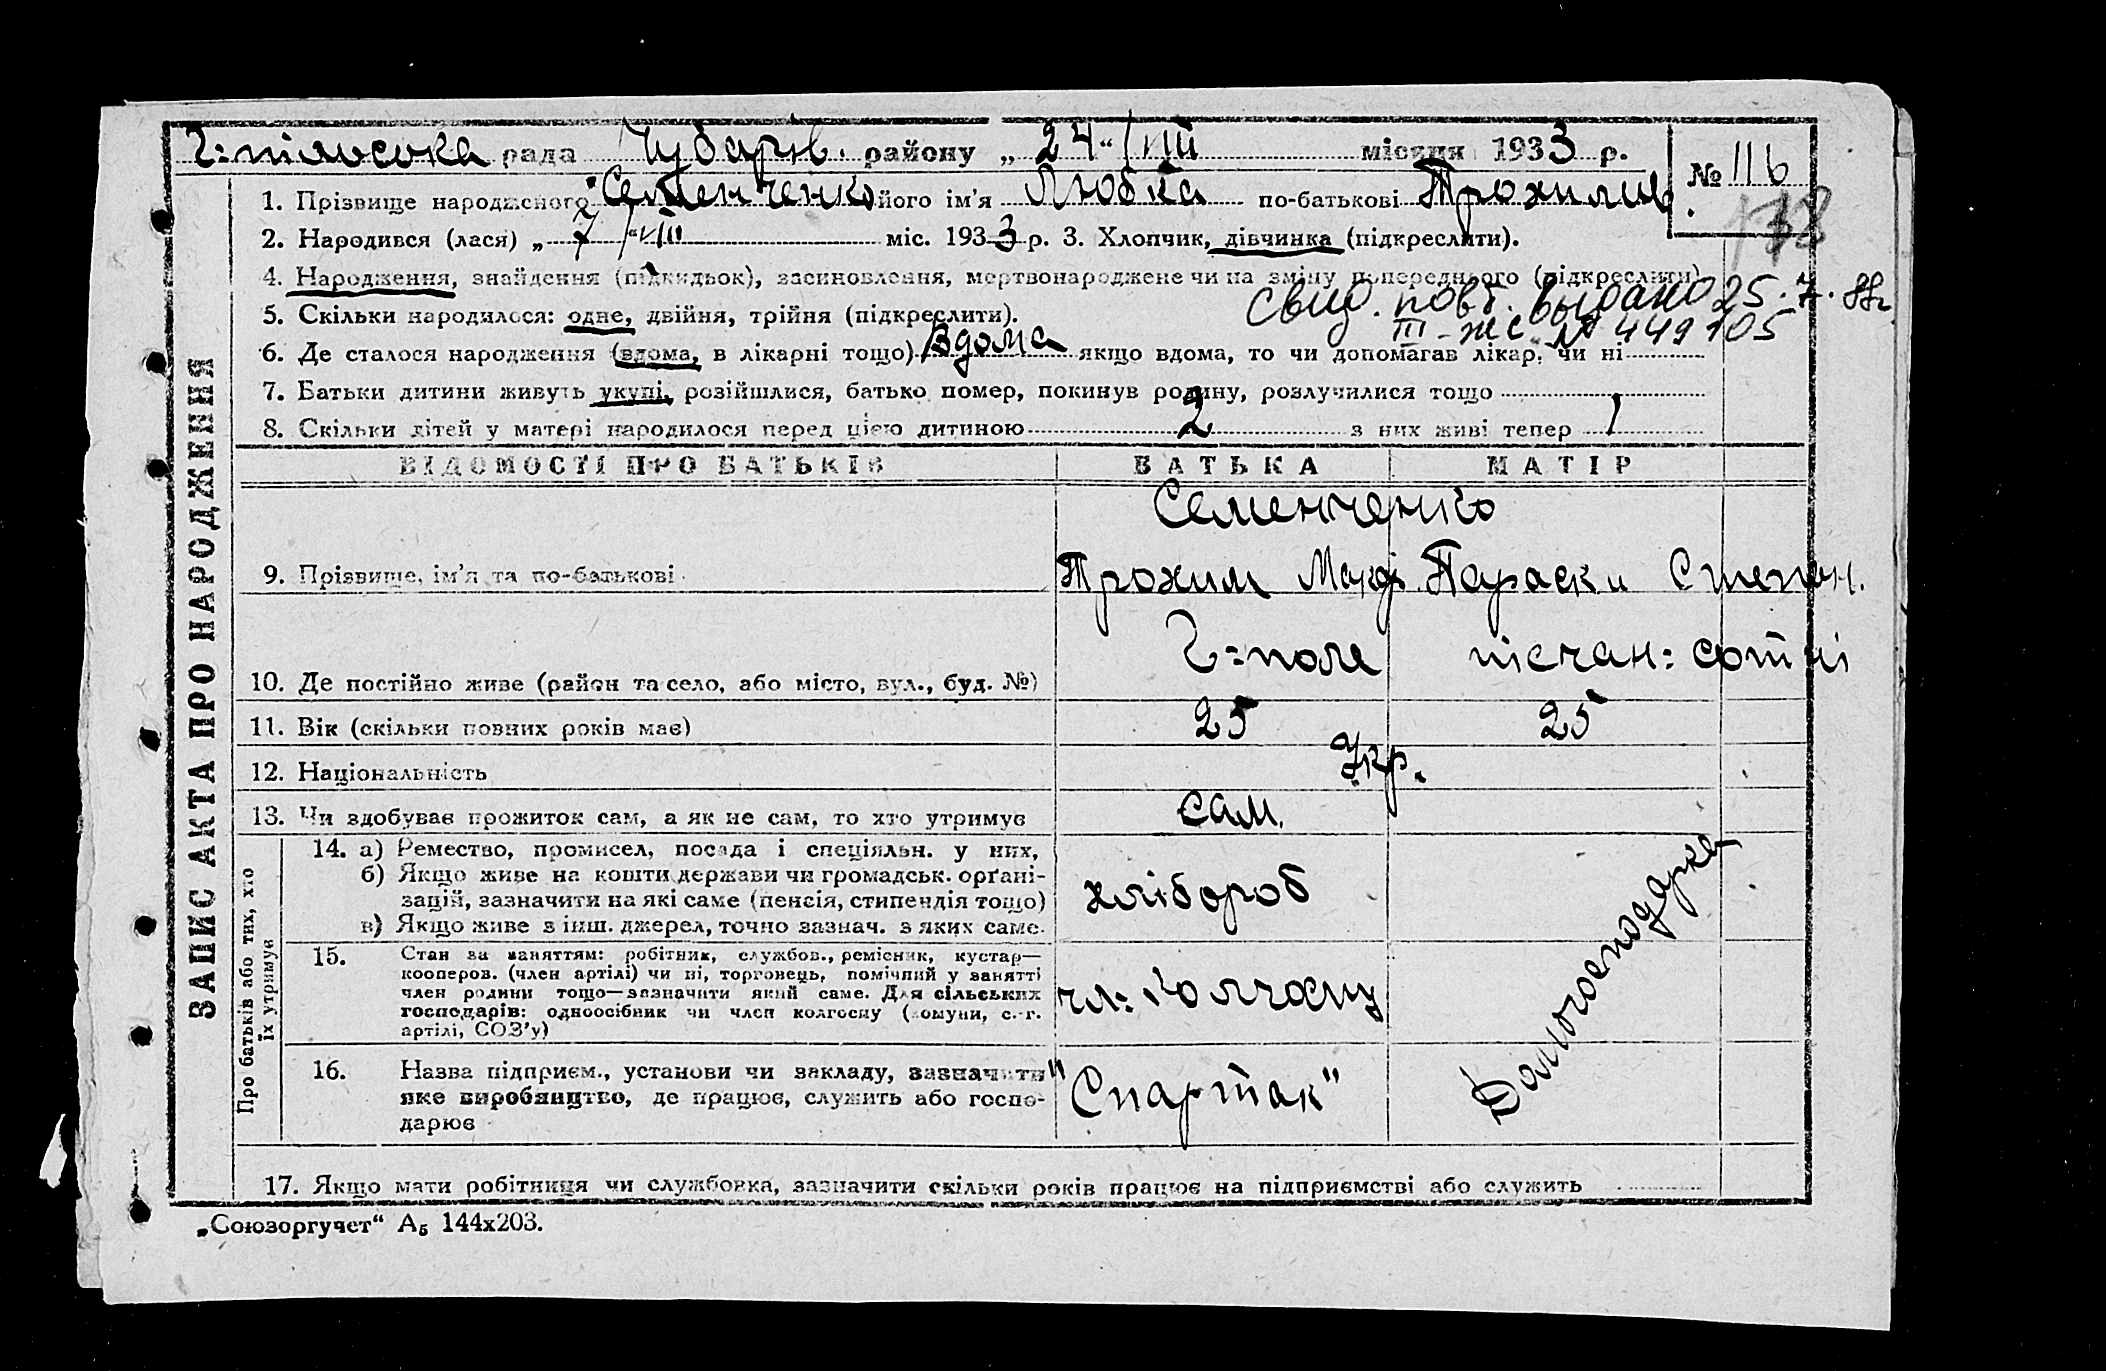 Г:пільська рада Чубарів. району „24“/VIII місяця 1933 р. № 116
138
1. Прізвище народженого Семенченко його ім'я Любка по-батькові Трохимів.
2. Народився (лася) „7“/VIII міс. 1933 р. 3. Хлопчик, дівчинка (підкреслити).
4. Народження, знайдення (підкидьок), засиновлення, мертвонароджене чи на зміну попереднього (підкреслити)
Свид. повт. выдано 25.7.88г
III-ЖС № 449105
5. Скільки народилося: одне, двійня, трійня (підкреслити).
6. Де сталося народження (вдома, в лікарні тощо) Вдома якщо вдома, то чи допомагав лікар, чи ні
7. Батьки дитини живуть укупі, розійшлися, батько помер, покинув родину, розлучилися тощо
8. Скільки дітей у матері народилося перед цією дитиною 2 з них живі тепер 1
ЗАПИС АКТА ПРО НАРОДЖЕННЯ
ВІДОМОСТІ ПРО БАТЬКІВ БАТЬКА МАТІР
Семенченко
9. Прізвище, ім'я та по-батькові Трохим Макар. Параски Степан.
10. Де постійно живе (район та село, або місто, вул., буд. №) Г:поле пісчан: сотні
11. Вік (скільки повних років має) 25 25
12. Національність Укр.
13. Чи здобуває прожиток сам, а як не сам, то хто утримує сам.
Про батьків або тих, хто
їх утримує
14. а) Ремество, промисел, посада і спеціяльн. у них,
б) Якщо живе на кошти держави чи громадськ. орґані-
зацій, зазначити на які саме (пенсія, стипендія тощо)
в) Якщо живе з інш. джерел, точно зазнач. з яких саме.
хлібороб
Домогосподарка
15. Стан за заняттям: робітник, службов., ремісник, кустар—
кооперов. (член артілі) чи ні, торговець, помічний у занятті
член родини тощо—зазначити який саме. Для сільських
господарів: одноосібник чи член колгоспу (комуни, с.-г.
артілі, СОЗ'у)
чл:
16. Назва підприєм., установи чи закладу, зазначити
яке виробництво, де працює, служить або госпо-
дарює
"Спартак"
17. Якщо мати робітниця чи службовка, зазначити скільки років працює на підприємстві або служить
„Союзоргучет“ А5 144х203.